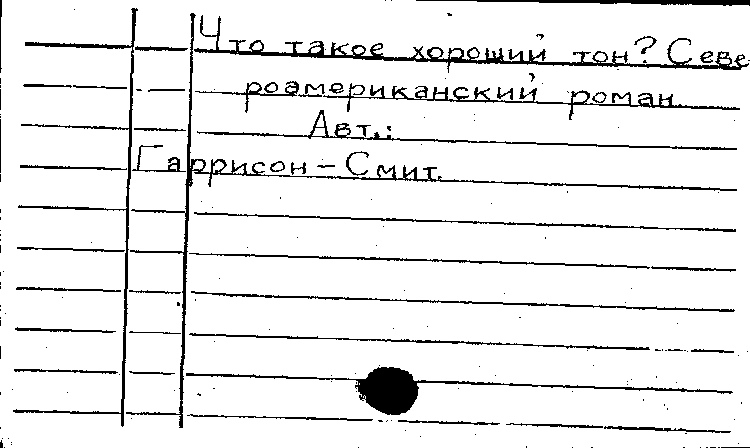 Что такое хороший тон? Севе
роамериканский роман.
Авт.:
Гаррисон-Смит.